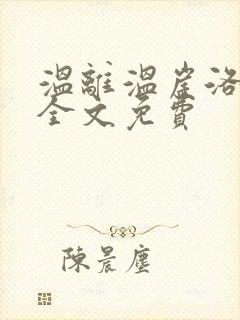 溫離溫崖洛
全文免費
陳晨塵